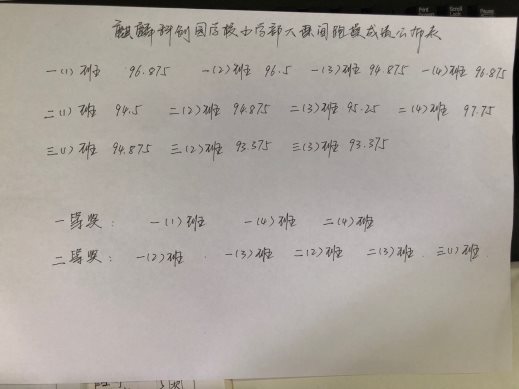 麒麟科创园学校小学部大课间跑操成绩公布表
一(1)班 96.875 一(2)班 96.5 一(3)班 94.875 一(4)班 96.875
二(1)班 94.5 二(2)班 94.875 二(3)班 95.25 二(4)班 97.75
三(1)班 94.875 三(2)班 93.375 三(3)班 93.375
一等奖: 一(1)班 一(4)班 二(4)班
二等奖: 一(2)班 一(3)班 二(2)班 二(3)班 三(1)班